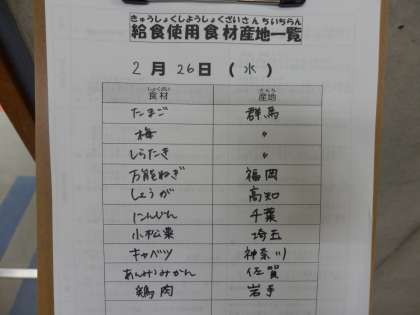 きゅうしょくしようしょくざいさんちいちらん
給食使用食材産地一覧
2月26日(水)
しょくざい さんち
食材 産地
たまご 群馬
梅 〃
しらたき 〃
万能ねぎ 福岡
しょうが 高知
にんじん 千葉
小松菜 埼玉
キャベツ 神奈川
あんみつみかん 佐賀
鶏肉 岩手